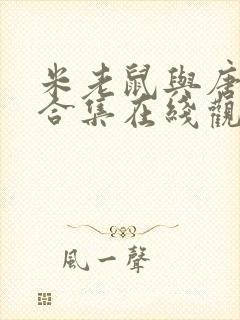 米老鼠與唐
合集在綫觀
風一聲